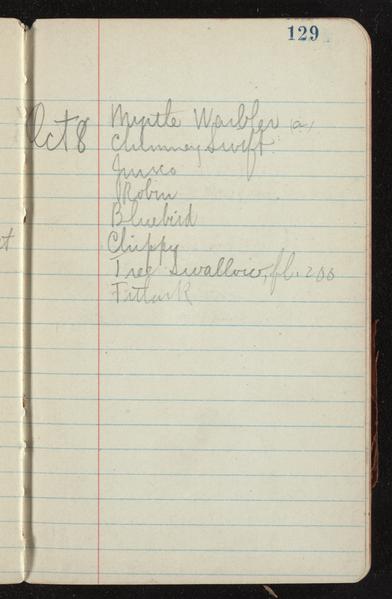 129
Oct 8
Myrtle Warbler (a)
Chimney Swift
Junco
Robin
Bluebird
Chippy
Tree Swallow, fl. 200
Titlark